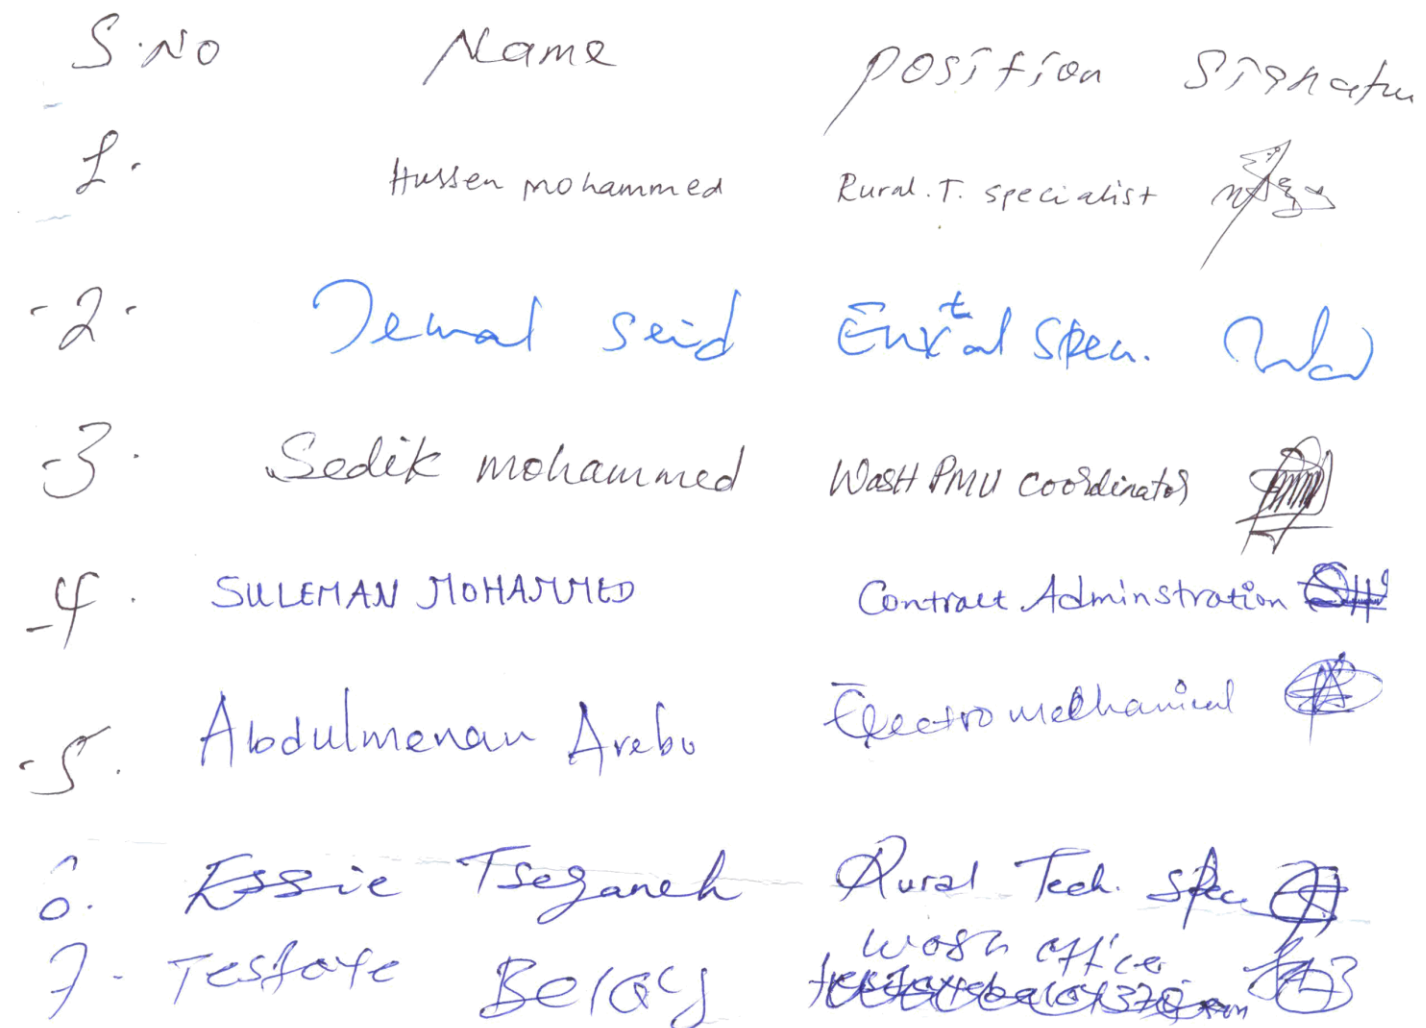 S.No Name Position Signatur
1. Hussen mohammed Rural.T. specialist
-2- Jemal Seid Env'tal Spec.
-3. Sedik mohammed WasH PMU coordinator
-4. SULEMAN MOHAMMED Contract Adminstration
-5. Abdulmenan Arebu Electromechanical
6. Essie Tseganeh Rural Tech. spec
7. Tesfaye Belay wosh office